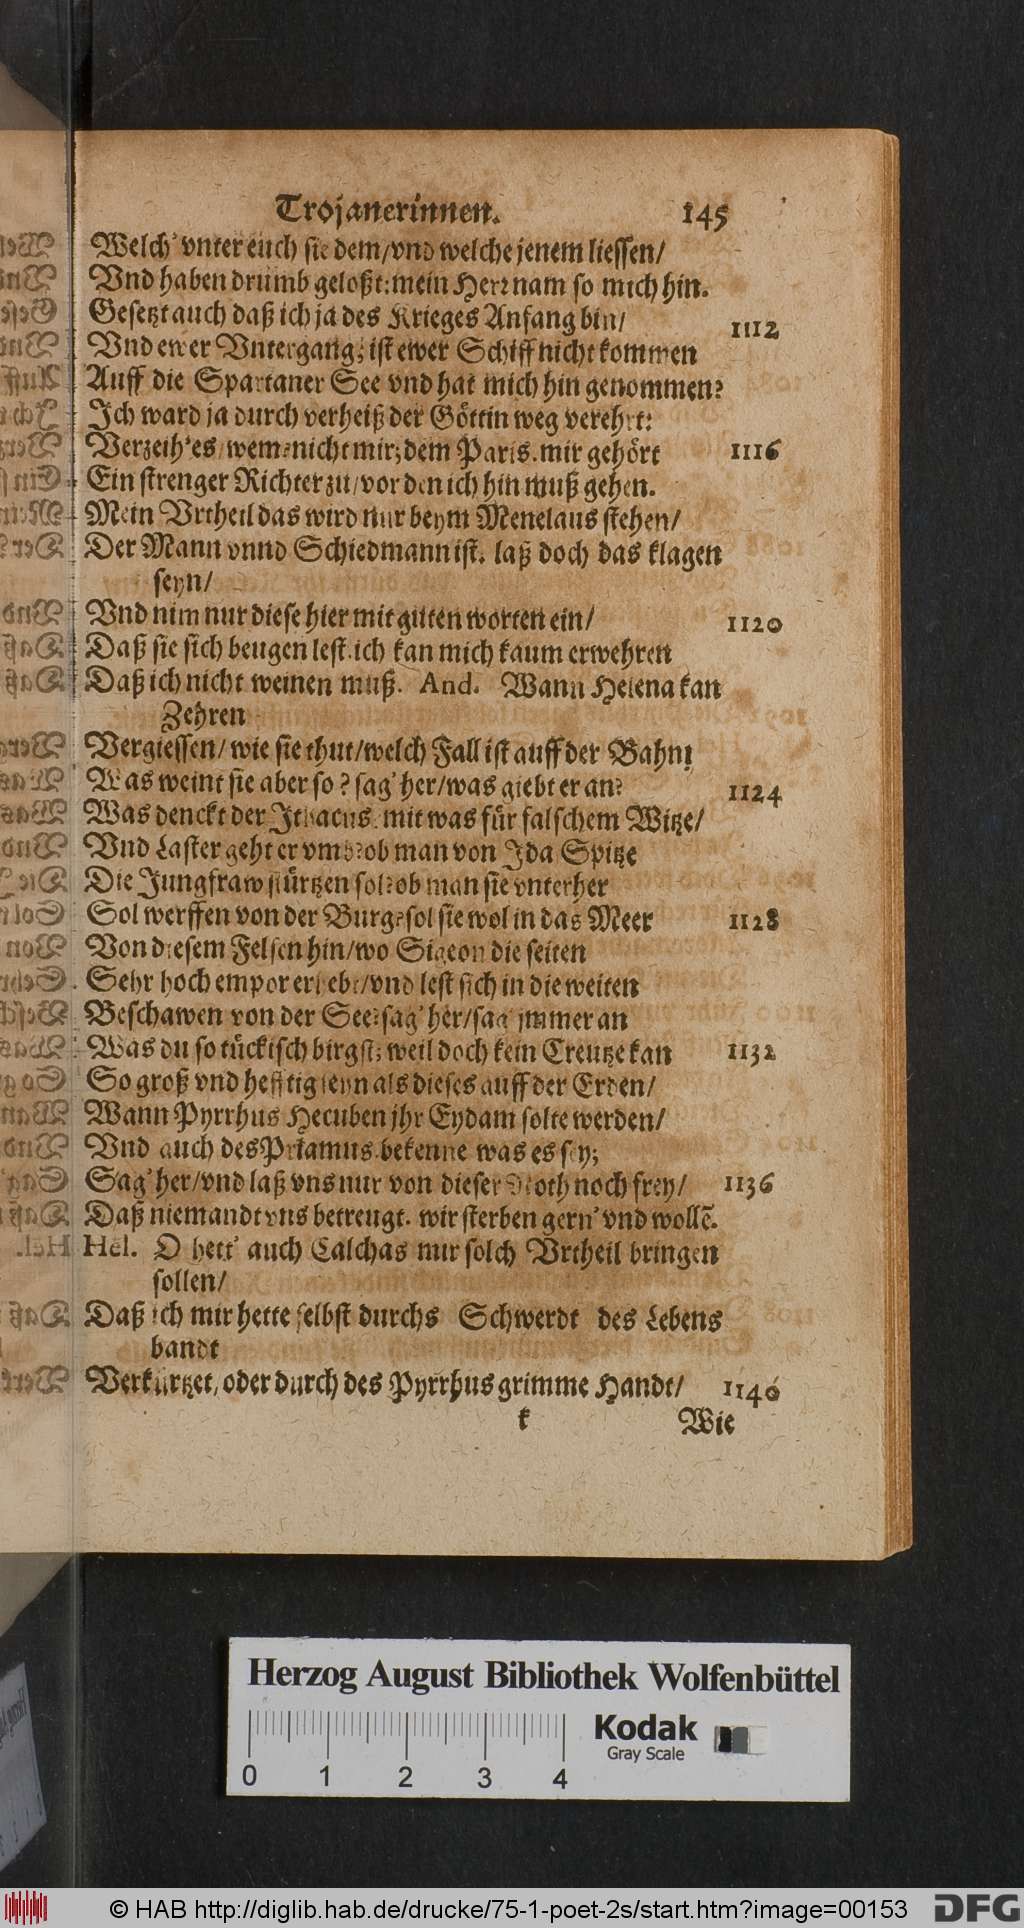 Trojanerinnen. 145
Welch' vnter euch sie dem/vnd welche jenem liessen/
Vnd haben drumb geloßt: mein Herr nam so mich hin.
Gesetzt auch daß ich ja des Krieges Anfang bin/ 1112
Vnd ewer Vntergang; ist ewer Schiff nicht kommen
Auff die Spartaner See vnd hat mich hin genommen?
Ich ward ja durch verheiß der Göttin weg verehrt:
Verzeih' es/wem? nicht mir; dem Paris. mir gehört 1116
Ein strenger Richter zu/vor den ich hin muß gehen.
Mein Vrtheil das wird nur beym Menelaus stehen/
Der Mann vnnd Schiedmann ist. laß doch das klagen
seyn/
Vnd nim nur diese hier mit guten worten ein/ 1120
Daß sie sich beugen lest. ich kan mich kaum erwehren
Daß ich nicht weinen muß. And. Wann Helena kan
Zehren
Vergiessen/ wie sie thut/welch Fall ist auff der Bahn!
Was weint sie aber so? sag' her/was giebt er an? 1124
Was denckt der Ithacus. mit was für falschem Witze/
Vnd Laster geht er vmb? ob man von Ida Spitze
Die Jungfraw stürtzen sol? ob man sie vnterher
Sol werffen von der Burg? sol sie wol in das Meer 1128
Von diesem Felsen hin/wo Sigeon die seiten
Sehr hoch empor erhebt/vnd lest sich in die weiten
Beschawen von der See? sag' her/sag jmmer an
Was du so tückisch birgst; weil doch kein Creutze kan 1132
So groß vnd hefftig seyn als dieses auff der Erden/
Wann Pyrrhus Hecuben jhr Eydam solte werden/
Vnd auch des Priamus. bekenne was es sey;
Sag' her/vnd laß vns nur von dieser Noth noch frey/ 1136
Daß niemandt vns betreugt. wir sterben gern' vnd wollē.
Hel. O hett' auch Calchas mir solch Vrtheil bringen
sollen/
Daß ich mir hette selbst durchs Schwerdt des Lebens
bandt
Verkürtzet, oder durch des Pyrrhus grimme Handt/ 1140
k Wie
Herzog August Bibliothek Wolfenbüttel
Kodak
Gray Scale
0 1 2 3 4
© HAB http://diglib.hab.de/drucke/75-1-poet-2s/start.htm?image=00153 DFG